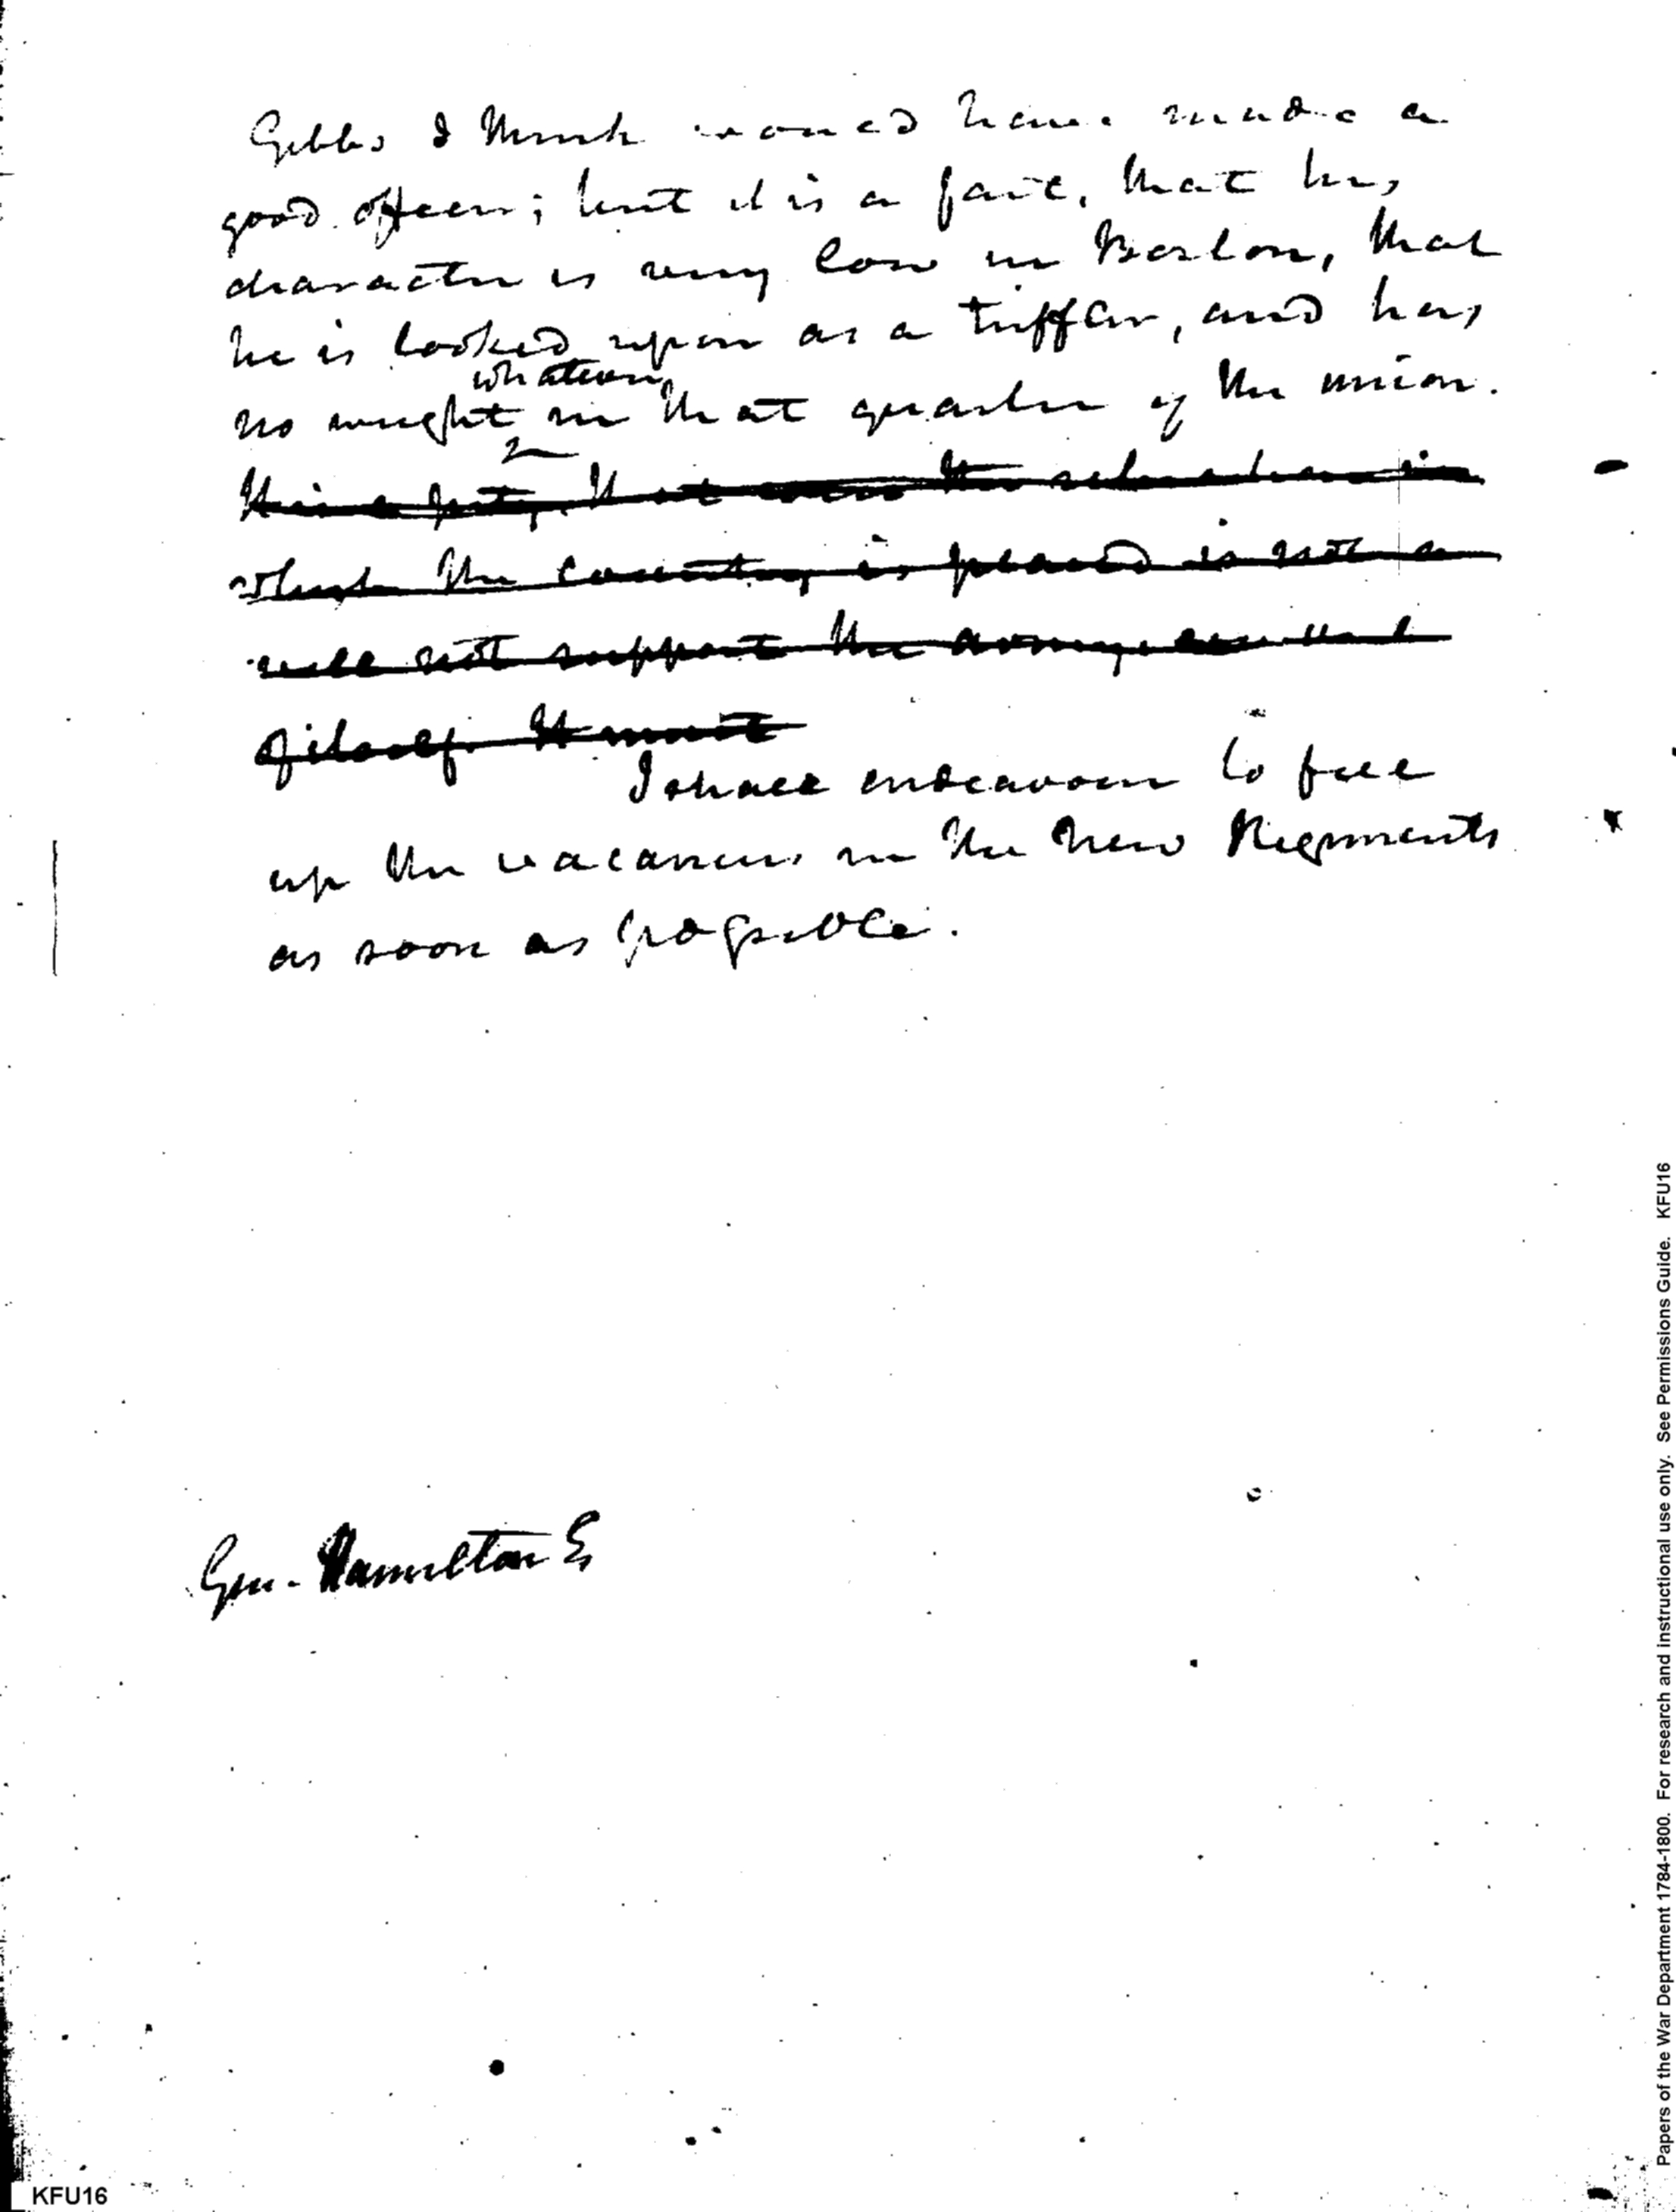 Gibbs I think would have made a
good officer; but it is a fact, that his
character is very low in Boston, that
he is looked upon as a triffler, and has
whatever
no weight in that quarter of the union.
It is a pity, that even the situation in
which the country is placed is not a
will not support the army
of itself. It must
I shall endeavour to fill
up the vacancies in the new Regiments
as soon as possible.
Gen. Hamilton
Papers of the War Department 1784-1800. For research and instructional use only. See Permissions Guide. KFU16
KFU16